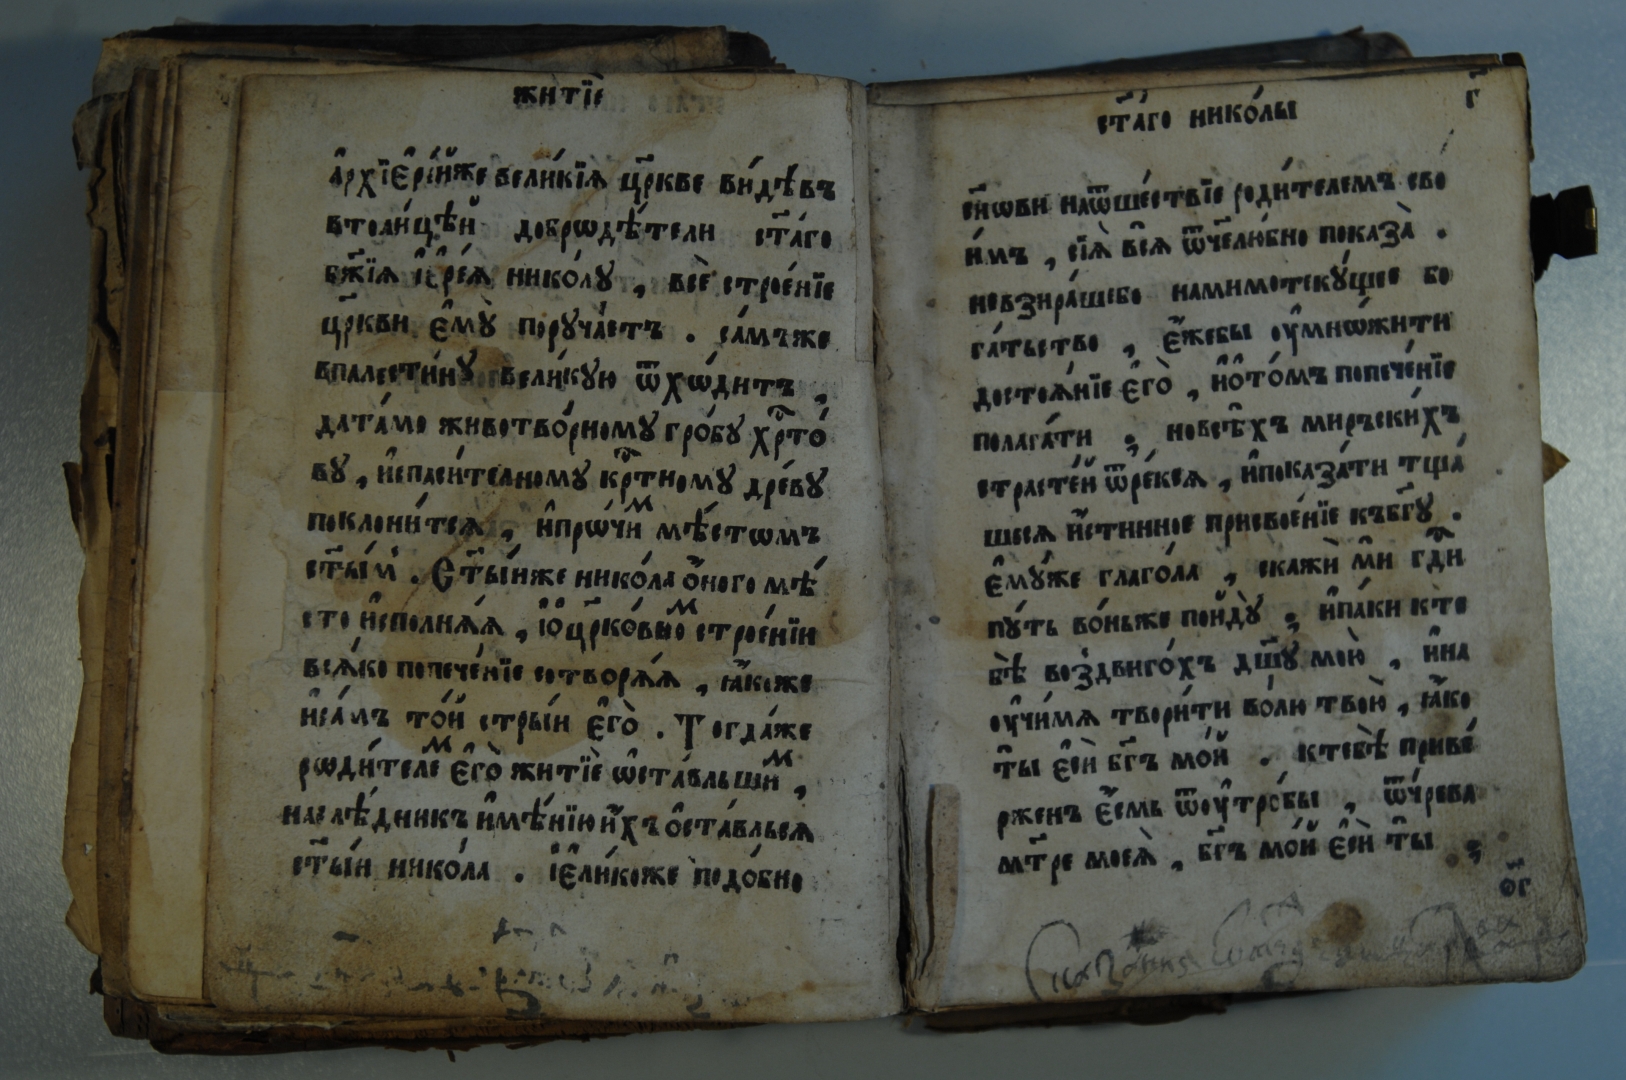 житїѐ
а҆рхїе҆ре́ийже вели́кїѧ цр҃кве ви́дѣвъ
втоли́цѣй добрѡдѣ́тели ст҃а́го
бж҃їѧ і҆е҆ре́ѧ нико́лу , всѐ строе́нїе
цр҃кви е҆мꙋ̀ порꙋча́етъ . са́мъже
впалести́нꙋ вели́кꙋю ѿхѡ́дитъ ,
дата́мо животво́рномꙋ гро́бꙋ хр҃то́
вꙋ , и҆спаси́телномꙋ кр҃тномꙋ дре́вꙋ
поклони́тсѧ , и҆прѡ́чиⷨ мѣ́стѡмъ
ст҃ы́м . Ст҃ы́йже нико́ла о҆́ного мѣ́
сто и҆сполнѧ́ѧ , і҆ѻ҆цр҃ко́вноⷨ строе́нїи
всѧ́ко попече́нїе сотворѧ́ѧ , ꙗ҆́коже
и҆са́мъ то́й стры́й є҆гѡ̀ . Тогда́же
рѡди́телеⷨ є҆гѡ̀ житїѐ ѡ҆ста́вльшиⷨ ,
наслѣ́дникъ и҆мѣ́нїю и҆́хъ ѻ҆ста́вльсѧ
ст҃ы́й нико́ла . і҆є҆ли́коже подо́бно
ст҃а́го нико́лы г҃
сн҃ови наѿше́ствїе роди́телемъ сво
и́мъ , сїѧ̀ всѧ̀ ѿчелю́бно показа̀ .
невзира́шебо намимотекꙋ́щее бо
га́тьство , є҆́жебы ᲂу҆мнѡ́жити
достоѧ́нїе є҆гѡ̀ , и҆ѻ҆то́мъ попече́нїе
полага́ти , новсѣ́хъ мирьски́хъ
страсте́й ѿре́ксѧ , и҆показа́ти тща́
шесѧ и҆́стинное присвое́нїе къбг҃ꙋ .
є҆мꙋ́же глаго́ла , скажѝ мѝ гд҃и
пꙋ́ть во́ньже пойдꙋ̀ , и҆па́ки кте
бѣ̀ воздвиго́хъ дш҃ꙋ мою̀ , и҆на
ᲂучи́мѧ твори́ти во́лю твою̀ , ꙗ҆́ко
ты̀ є҆сѝ бг҃ъ мо́й . ктебѣ̀ приве́
рженъ є҆́смь ѿᲂу҆тро́бы , ѿчре́ва
мт҃ре моеѧ̀ , бг҃ъ мо́й є҆сѝ ты̀ ,
о҃г